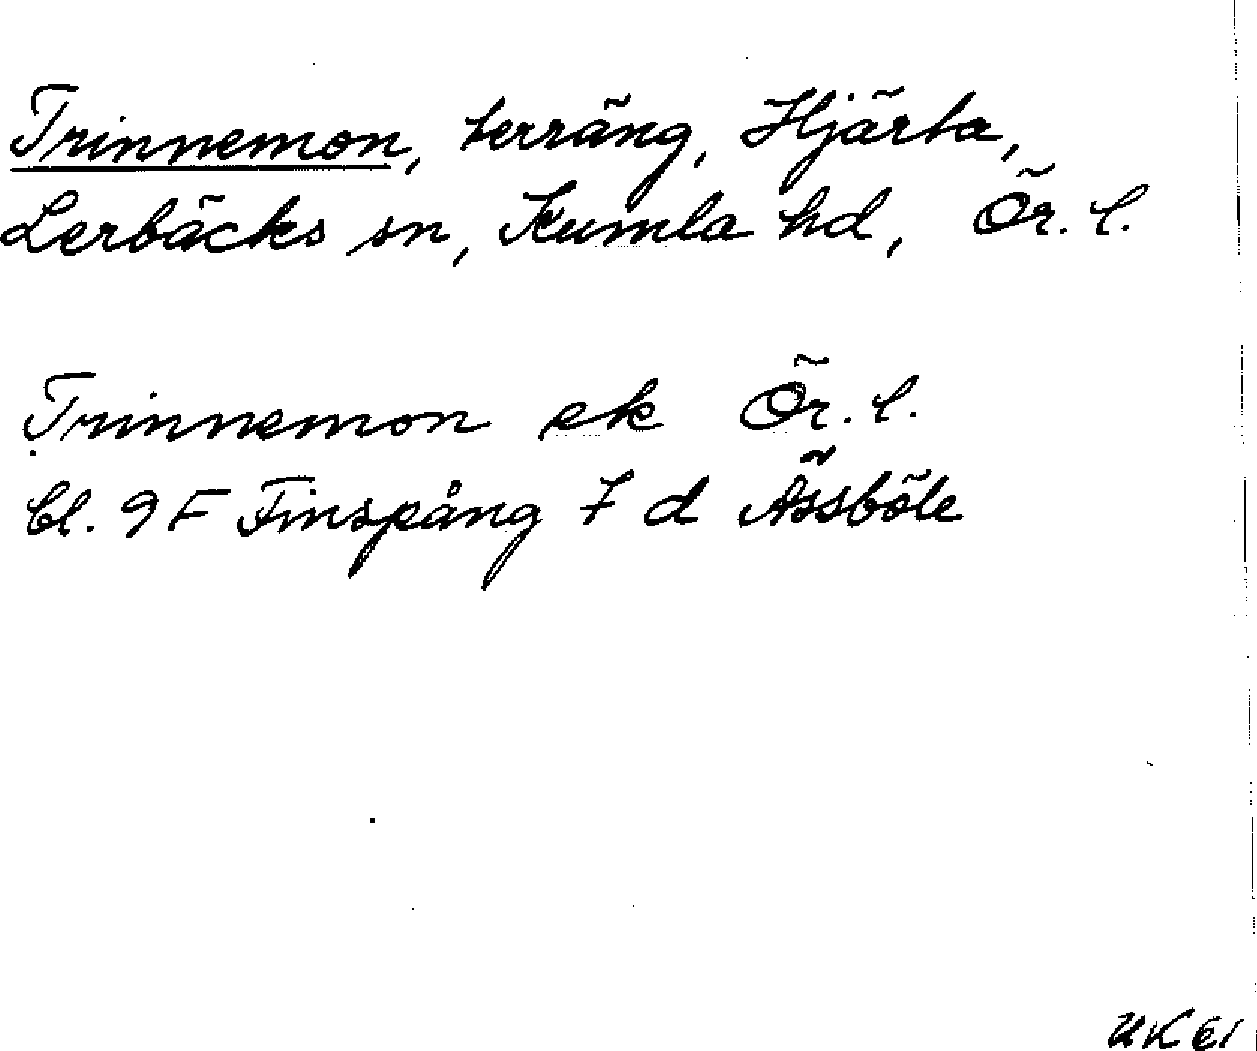 Trinnemon, terräng, Hjärta,
Lerbäcks sn, Kumla hd, Ör. l.
Trinnemon ek Ör. l.
bl. 9 F Finspång 7 d Åssböle